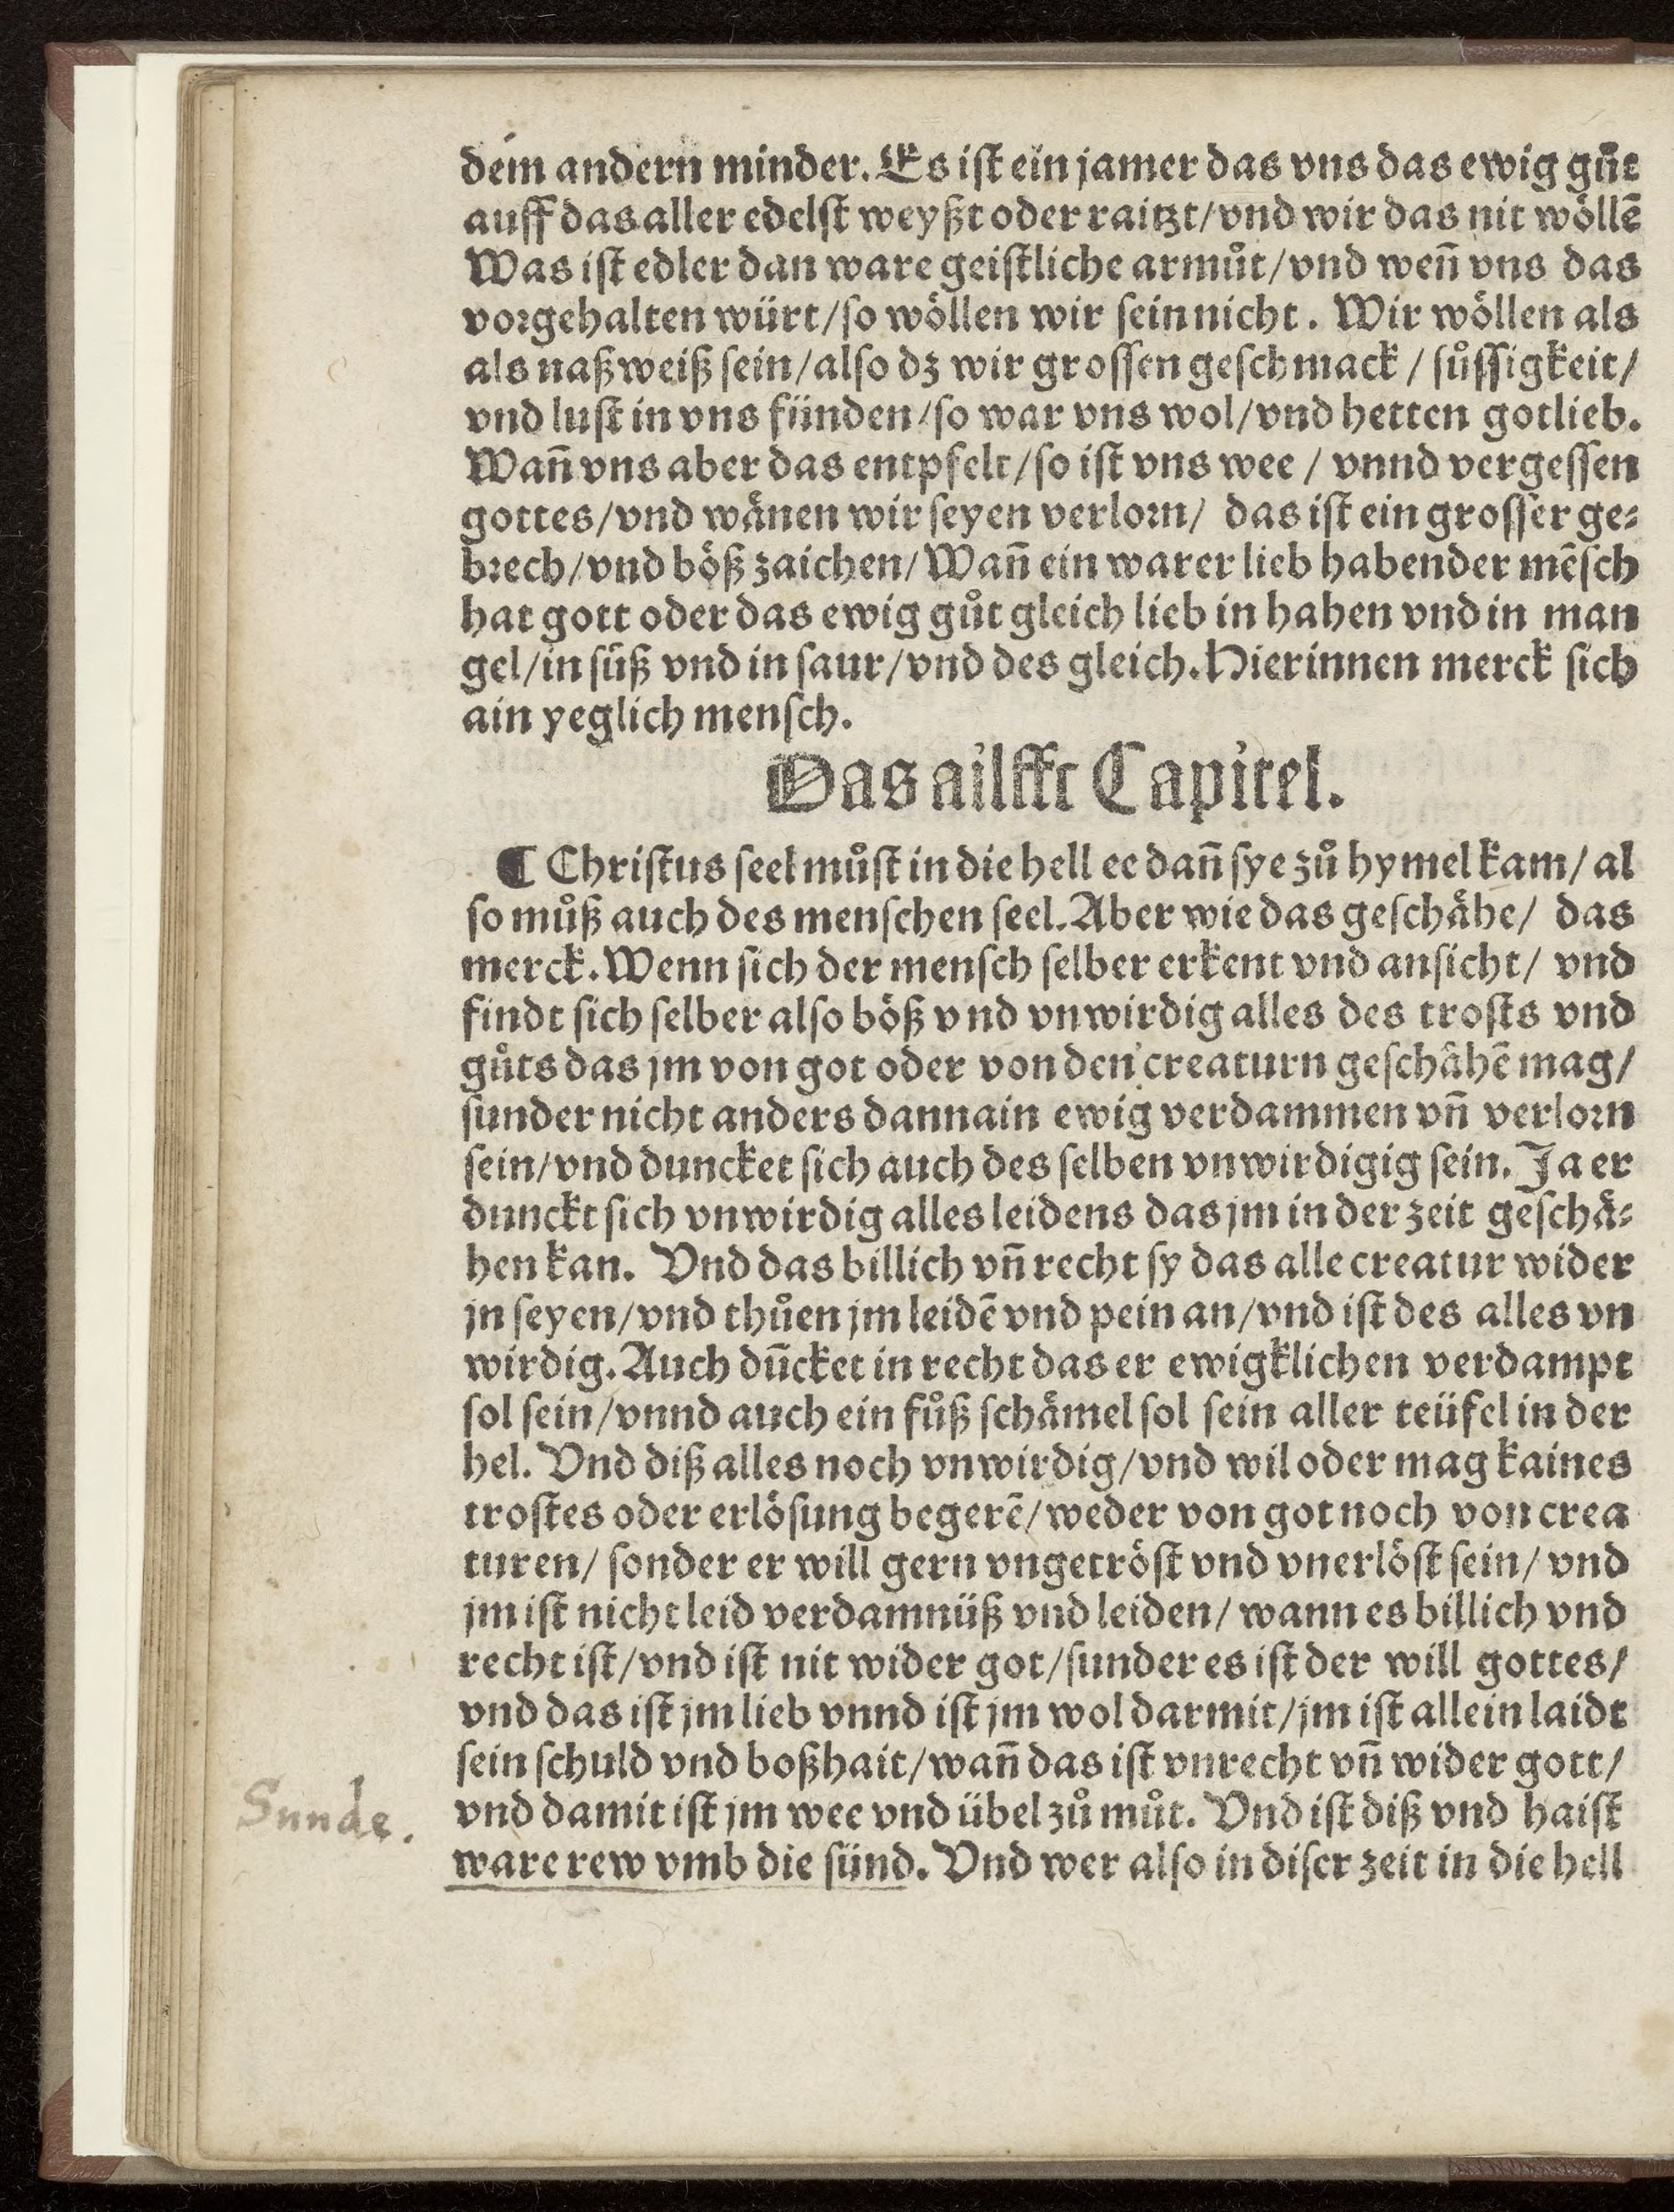 dem andern minder. Es iſt ein jamer das vns das ewig gůt
auff das aller edelſt weyßt oder raitzt/vnd wir das nit woͤllē
Was iſt edler dan ware geiſtliche armůt/vnd wen̄ vns das
vorgehalten würt/ſo woͤllen wir ſein nicht. Wir woͤllen als
als naßweiß ſein/alſo dz wir groſſen geſchmack / ſůſſigkeit/
vnd luſt in vns fünden/ſo war vns wol/vnd hetten gotlieb.
Wan̄ vns aber das entpfelt/ſo iſt vns wee / vnnd vergeſſen
gottes/vnd waͤnen wir ſeyen verlorn/ das iſt ein groſſer ge⸗
brech/vnd boͤß zaichen/Wan̄ ein warer lieb habender mēſch
hat gott oder das ewig gůt gleich lieb in haben vnd in man
gel/in ſüß vnd in ſaur/vnd des gleich. Hierinnen merck ſich
ain yeglich menſch.
Das ailfft Capitel.
¶ Chriſtus ſeel můſt in die hell ee dan̄ ſye zů hymel kam/ al
ſo můß auch des menſchen ſeel. Aber wie das geſchaͤhe/ das
merck. Wenn ſich der menſch ſelber erkent vnd anſicht/ vnd
findt ſich ſelber alſo boͤß vnd vnwirdig alles des troſts vnd
gůts das jm von got oder von den creaturn geſchaͤhē mag/
ſunder nicht anders dann ain ewig verdammen vn̄ verlorn
ſein/vnd duncket ſich auch des ſelben vnwirdigig ſein. Ja er
dunckt ſich vnwirdig alles leidens das jm in der zeit geſchaͤ⸗
hen kan. Vnd das billich vn̄ recht ſy das alle creatur wider
jn ſeyen/vnd thůen jm leidē vnd pein an/vnd iſt des alles vn
wirdig. Auch dūcket in recht das er ewigklichen verdampt
ſol ſein/vnnd auch ein fůß ſchaͤmel ſol ſein aller teüfel in der
hel. Vnd diß alles noch vnwirdig/vnd wil oder mag kaines
troſtes oder erloͤſung begerē/weder von got noch von crea
turen/ ſonder er will gern vngetroͤſt vnd vnerloͤſt ſein/ vnd
jm iſt nicht leid verdamnüß vnd leiden/ wann es billich vnd
recht iſt/vnd iſt nit wider got/ſunder es iſt der will gottes/
vnd das iſt jm lieb vnnd iſt jm wol darmit/jm iſt allein laidt
ſein ſchuld vnd boßhait/wan̄ das iſt vnrecht vn̄ wider gott/
Sunde. vnd damit iſt jm wee vnd übel zů můt. Vnd iſt diß vnd haiſt
ware rew vmb die ſünd. Vnd wer alſo in diſer zeit in die hell